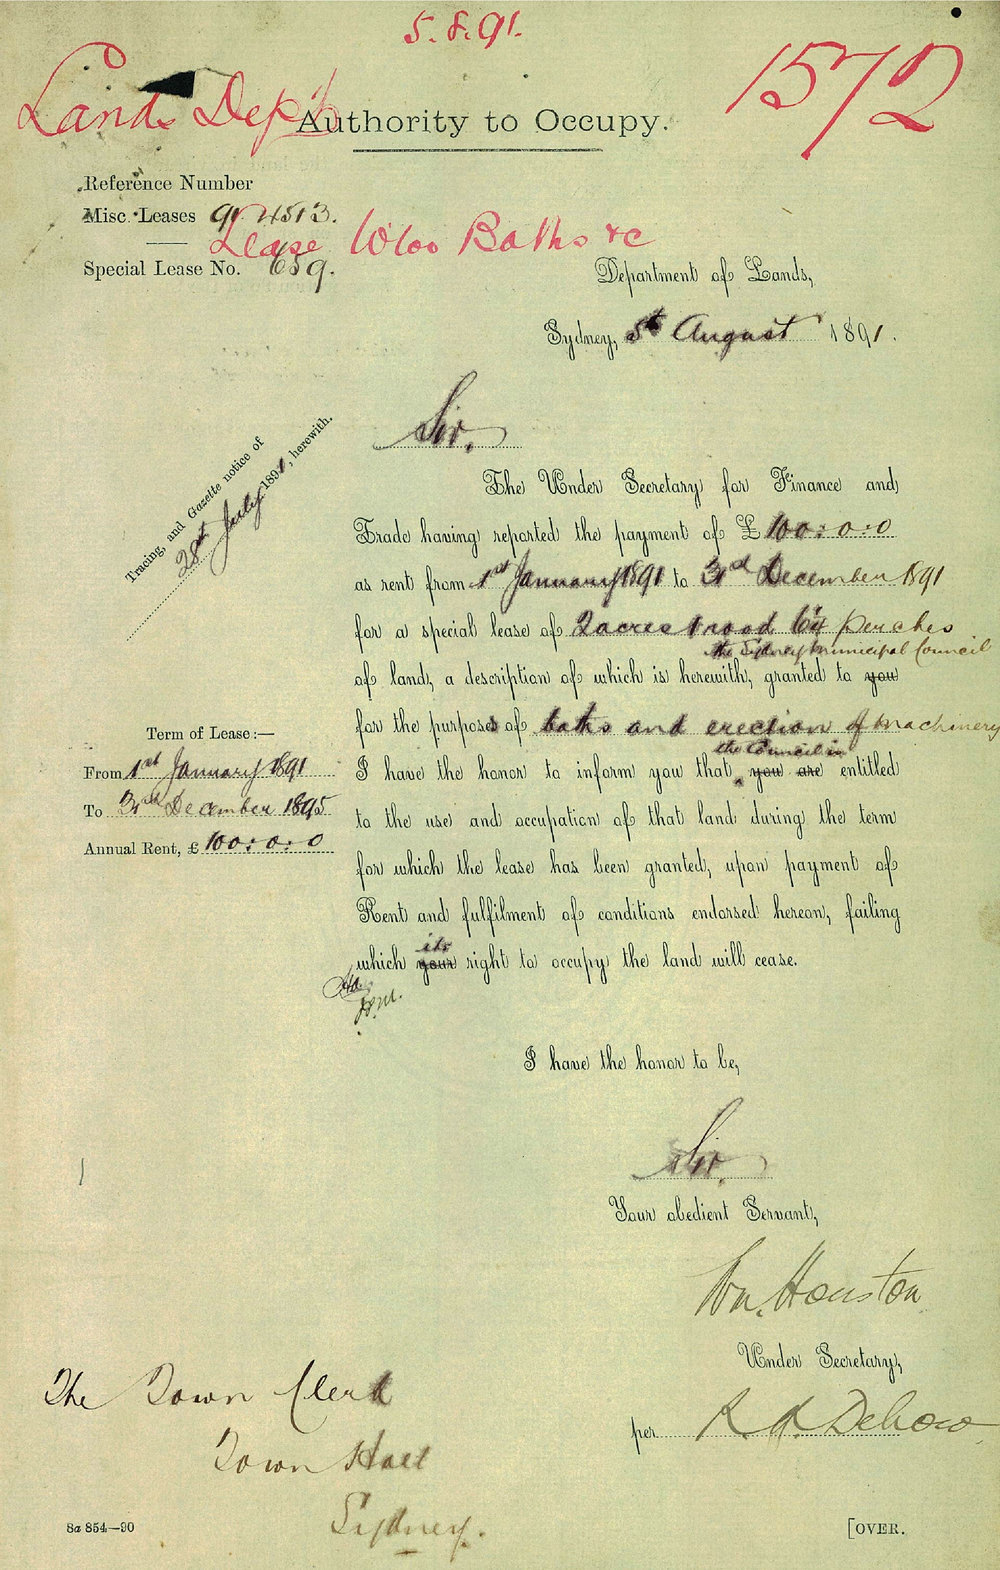 5.8.91.
Lands Dep't
1572
Authority to Occupy.
Reference Number
Misc. Leases 91.4513.
Lease W'loo Baths &c
Special Lease No. 659.
Department of Lands,
Sydney, 5th August 1891.
Sir,
Tracing, and Gazette notice of
28th July 1891, herewith.
The Under Secretary for Finance and
Trade having reported the payment of £100:0:0
as rent from 1st January 1891 to 31st December 1891
for a special lease of 2 acres 1 rood 6¼ perches
the Sydney Municipal Council
of land, a description of which is herewith, granted to you
for the purposes of baths and erection of machinery
the Council is
I have the honor to inform you that you are entitled
to the use and occupation of that land during the term
for which the lease has been granted, upon payment of
Rent and fulfilment of conditions endorsed hereon, failing
its
which your right to occupy the land will cease.
Term of Lease:—
From 1st January 1891
To 31st December 1895
Annual Rent, £100:0:0
I have the honor to be,
Sir,
Your obedient Servant,
Wm. Houston
Under Secretary,
per
The Town Clerk
Town Hall
Sydney.
8a 854—90
[OVER.